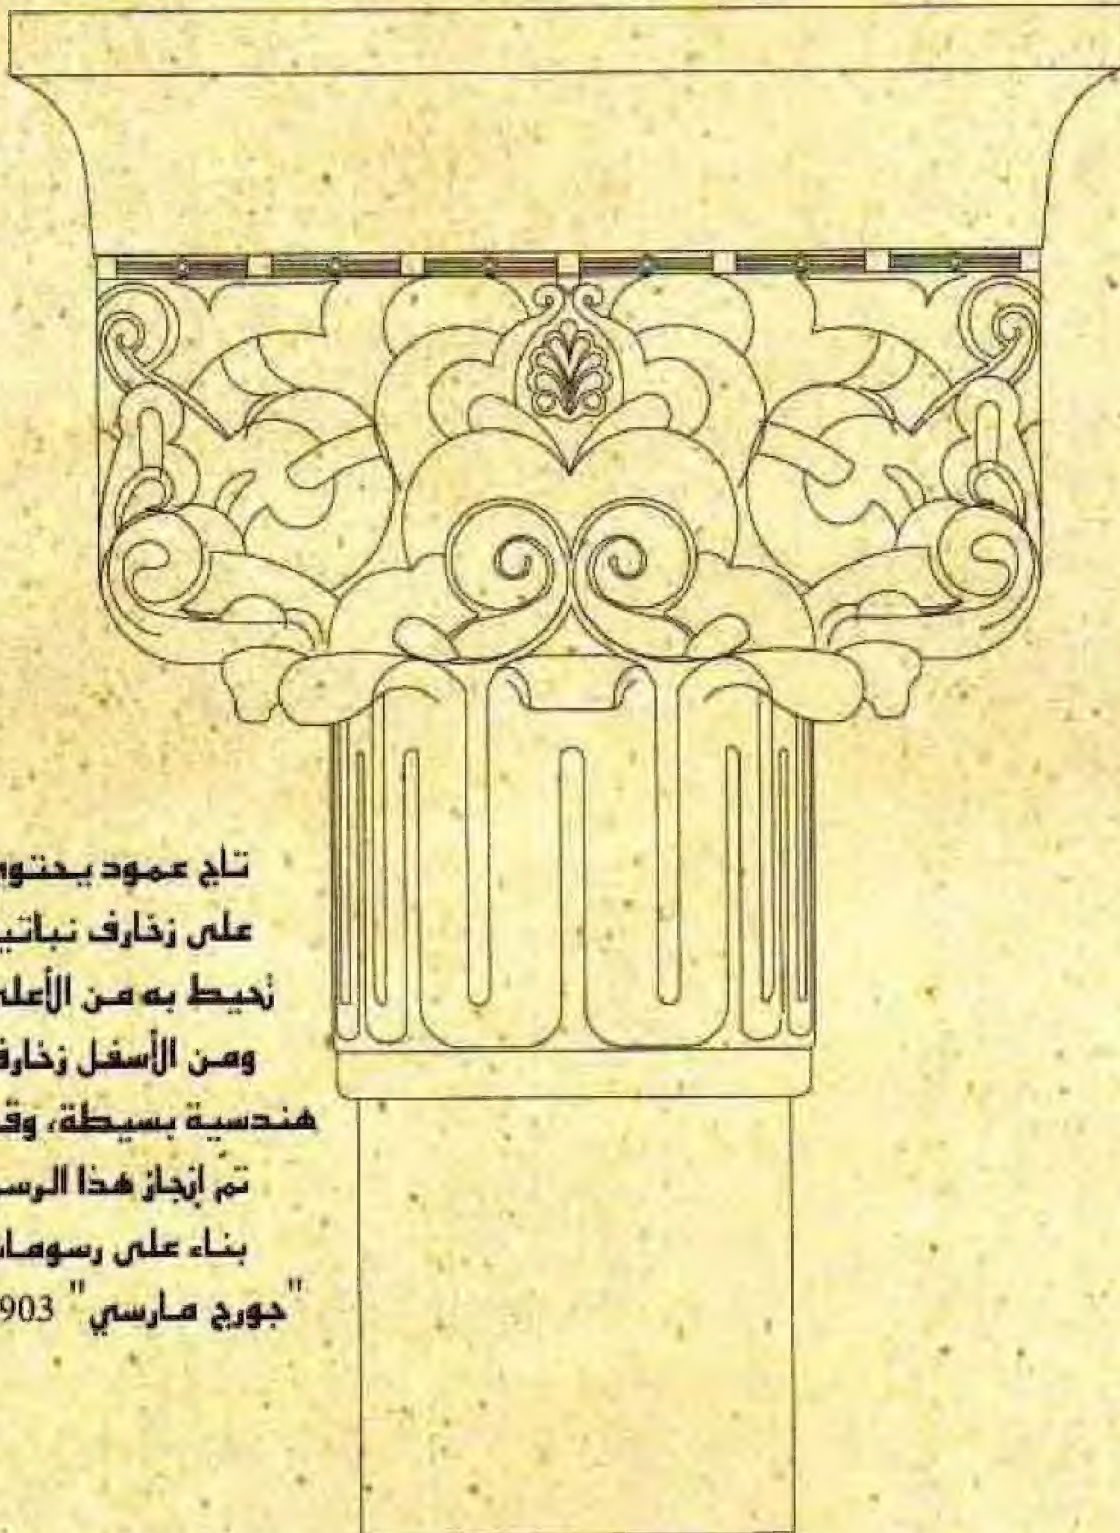 تاج عمود يحتوي
على زخارف نباتي
تُحيط به من الأعل
ومن الأسفل زخارف
هندسية بسيطة، وق
تمّ إنجاز هذا الرس
بناء على رسوما
"جورج مارسي" 903